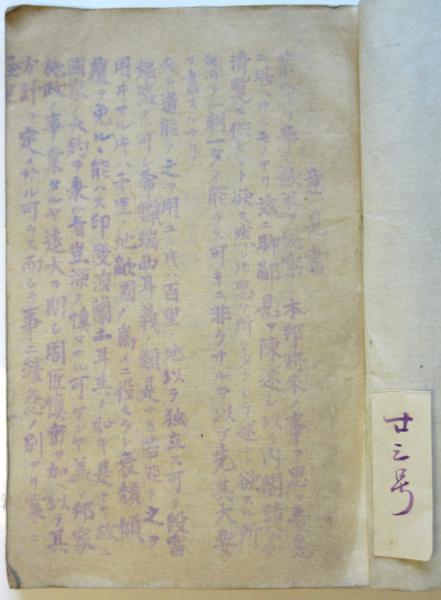 意見書
命ヲ奉シ欧米ヲ視察シ本邦将来ノ事ヲ思ヒ憂患
ニ堪ヘサルモノアリ茲ニ聊鄙見ヲ陳述シ以テ内閣諸公ノ
清覧ニ供セント欲ス然レ𪜈思フ所多クシテ述ヘント欲スル所
一朝一夕ノ能クス可キニ非ラサルヲ以テ先其大要
スルナリ
夫レ道能ク之ヲ用ユル片ハ百里ノ地以テ独立ス可ク殷富
盛ナル可シ希獵瑞西耳義ノ類是ナリ若能ク之ヲ
用ヰサル片ハ千里ノ地敵國ノ為メニ役セラレ衰頽傾
覆ヲ免ルヽ能ハス印度波蘭土耳其ノ如キ是ナリ故ニ
國家ノ大約ヲ秉ル者豈深ク慎マサル可ケンヤ蓋シ邦家
施政ノ事業タルヤ遠大ヲ期シ周匝慎密ヲ加ヘ以テ其
方計ヲ定メサル可ラス而シテ事ニ緩急ノ別アリ業ニ
廿三号